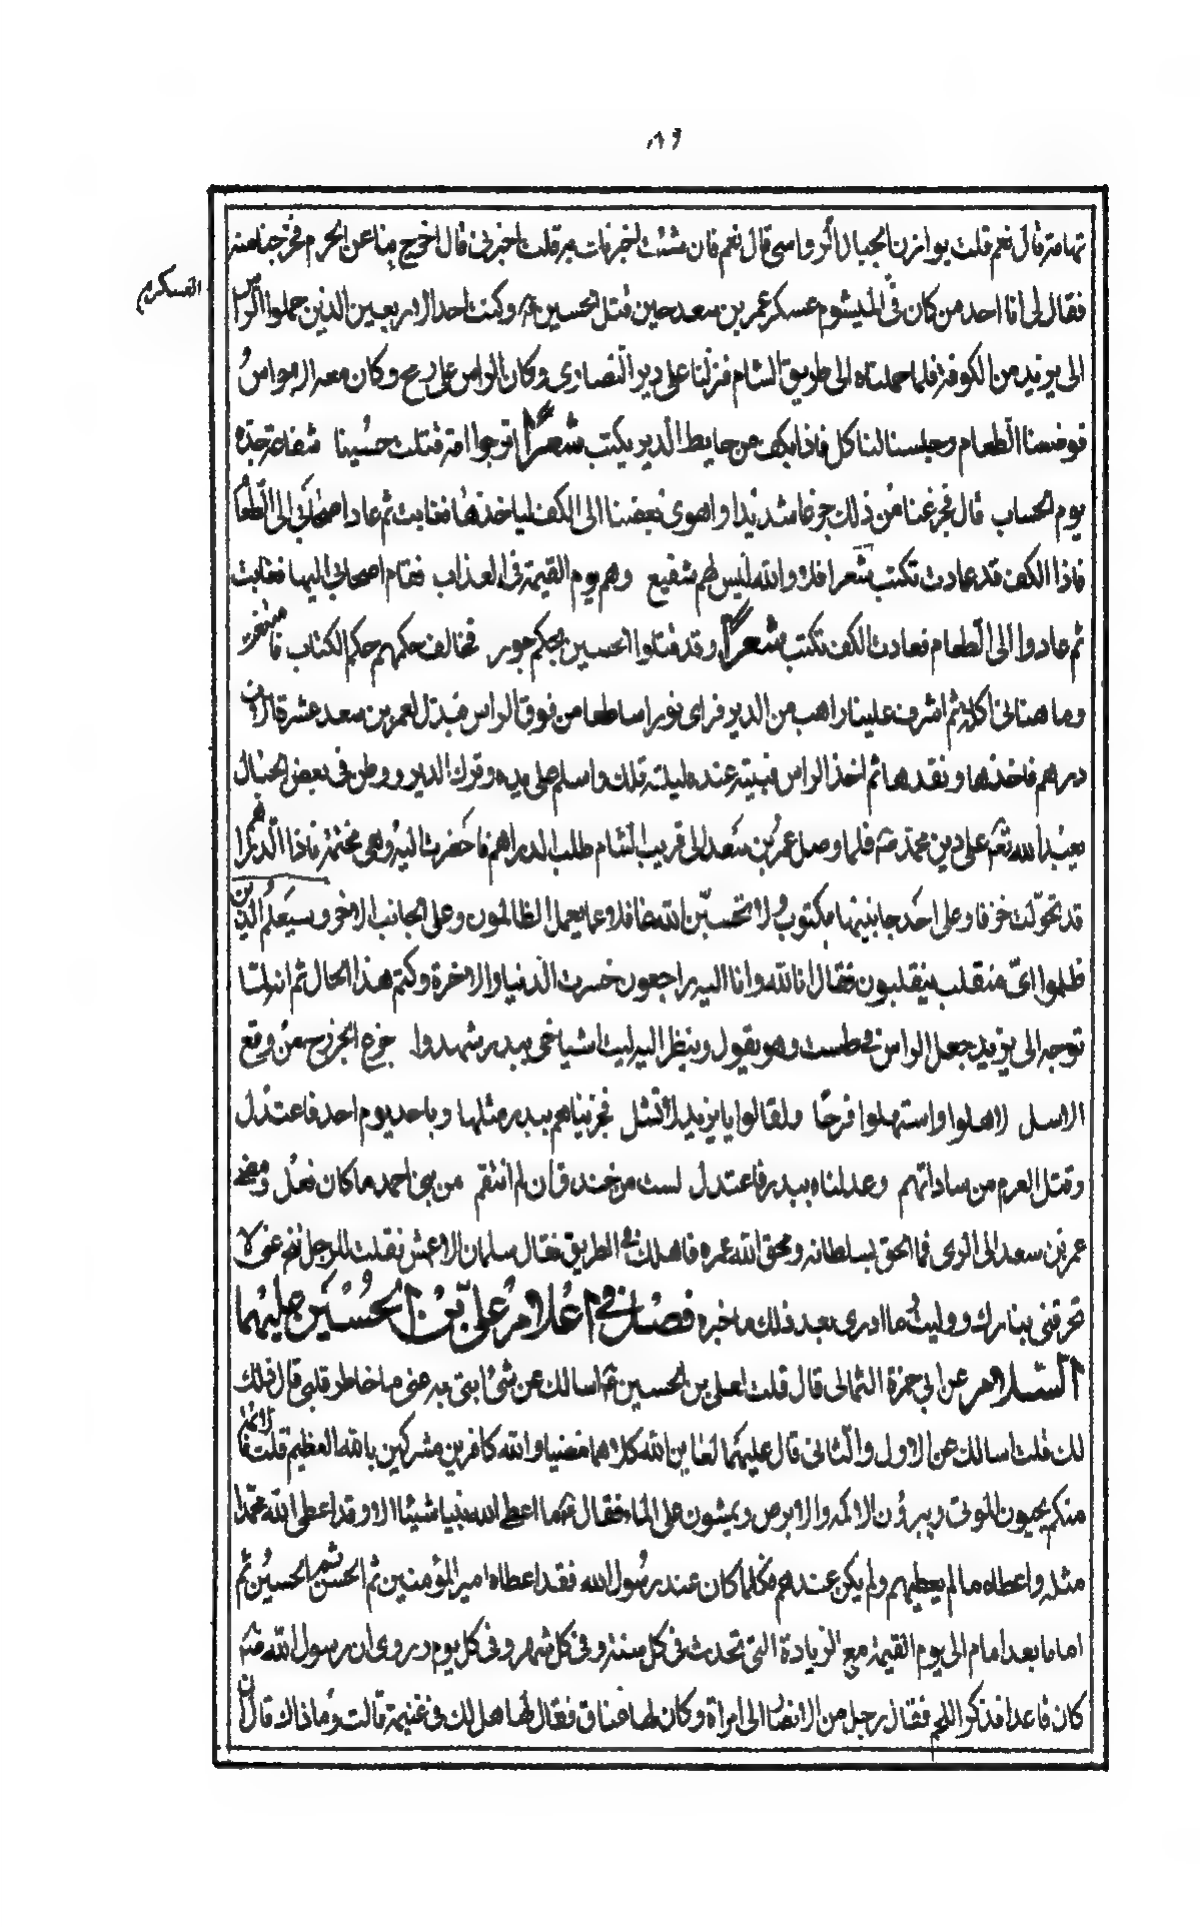 ٨٩
تهامة قال نعم قلت يوازن الجبال الرواسى قال نعم فان شئت اخبرتك به قلت اخبرنى فقال اخرج بنا عن الحرم فخرجنا منه
فقال لى انا احد من كان فى الميشوم عسكر عمر بن سعد حين قتل الحسين ع وكنت احد الاربعين الذين حملوا الراس
العسكرين
الى يزيد من الكوفة فلما حملناه الى طريق الشام فنزلنا على دير النصارى وكان الراس على رمح وكان معه الاحراس
فوضعنا الطعام وجلسنا لناكل فاذا بكف من حايط الدير يكتب شعرا اترجوا امة قتلت حسينا شفاعة جده
يوم الحساب قال فجزعنا من ذلك جزعا شديدا واهوى بعضنا الى الكف لياخذها فغابت ثم عاد اصحابى الى الطعا
فاذا الكف قد عادت تكتب شعرا فلا والله ليس لهم شفيع وهم يوم القيمة فى العذاب فقام اصحابى اليها فغابت
ثم عادوا الى الطعام فعادت الكف تكتب شعرا وقد قتلوا الحسين بحكم جور فخالف حكمهم حكم الكتاب فامتنعت
وما هنانى اكله ثم اشرف علينا راهب من الدير فراى نورا ساطعا من فوق الراس فبذل لعمر بن سعد عشرة الاف
درهم فاخذها ونقدها ثم اخذ الراس فبيته عنده ليلته تلك واسلم على يده وترك الدير ووطن فى بعض الجبال
يعبد الله تع على دين محمد ص فلما وصل عمر بن سعد الى قريب الشام طلب الدراهم فاحضرت اليه وهى مختمة فاذا الدراهم
قد تحولت خزفا وعلى احد جانبيها مكتوب لا تحسبن الله غافلا عما يعمل الظالمون وعلى الجانب الاخر وسيعلم الذين
ظلموا اى منقلب ينقلبون فقال انا لله وانا اليه راجعون خسرت الدنيا والاخرة وكتم هذا الحال ثم انه لما
توجه الى يزيد جعل الراس فى طست وهو يقول وينظر اليه ليت اشياخى ببدر شهدوا جزع الخزرج من وقع
الاسل لاهلوا واستهلوا فرحا ولقالوا يا يزيد لا تشل فجزيناهم ببدر مثلها وباحد يوم احد فاعتدل
وقتل القرم من ساداتهم وعدلناه ببدر فاعتدل لست من خندف ان لم انتقم من بنى احمد ما كان فعل ومضى
عمر بن سعد الى الرى فما الحق بسلطانه ومحق الله عمره فاهلك فى الطريق فقال سلمان الاعمش فقلت للرجل تنح عنى لا
تحرقنى بنارك ووليت ما ادرى بعد ذلك ما خبره فصل فى اعلام على بن الحسين عليهما
السلام عن ابى حمزة الثمالى قال قلت لعلى بن الحسين ع اسالك عن شئ انفى به عنى ما خاطر قلبى قال ذلك
لك قلت اسالك عن الاول والثانى قال عليهما لعاين الله كلاهما مضيا والله كافرين مشركين بالله العظيم قلت فالائمة
منكم يحيون الموتى ويبرؤن الاكمه والابرص ويمشون على الماء فقال ع ما اعطى الله نبيا شيئا الا وقد اعطى الله محمدا
مثله واعطاه ما لم يعطهم ولم يكن عندهم فكلما كان عند رسول الله فقد اعطاه امير المؤمنين ثم الحسن ثم الحسين ثم
اماما بعد امام الى يوم القيمة مع الزيادة التى تحدث فى كل سنة وفى كل شهر وفى كل يوم وروى ان رسول الله ص
كان قاعدا فذكر اللحم فقال رجل من الانصار الى امراة وكان لها عناق فقال لها هل لك فى غنيمة قالت وما ذاك قال ان